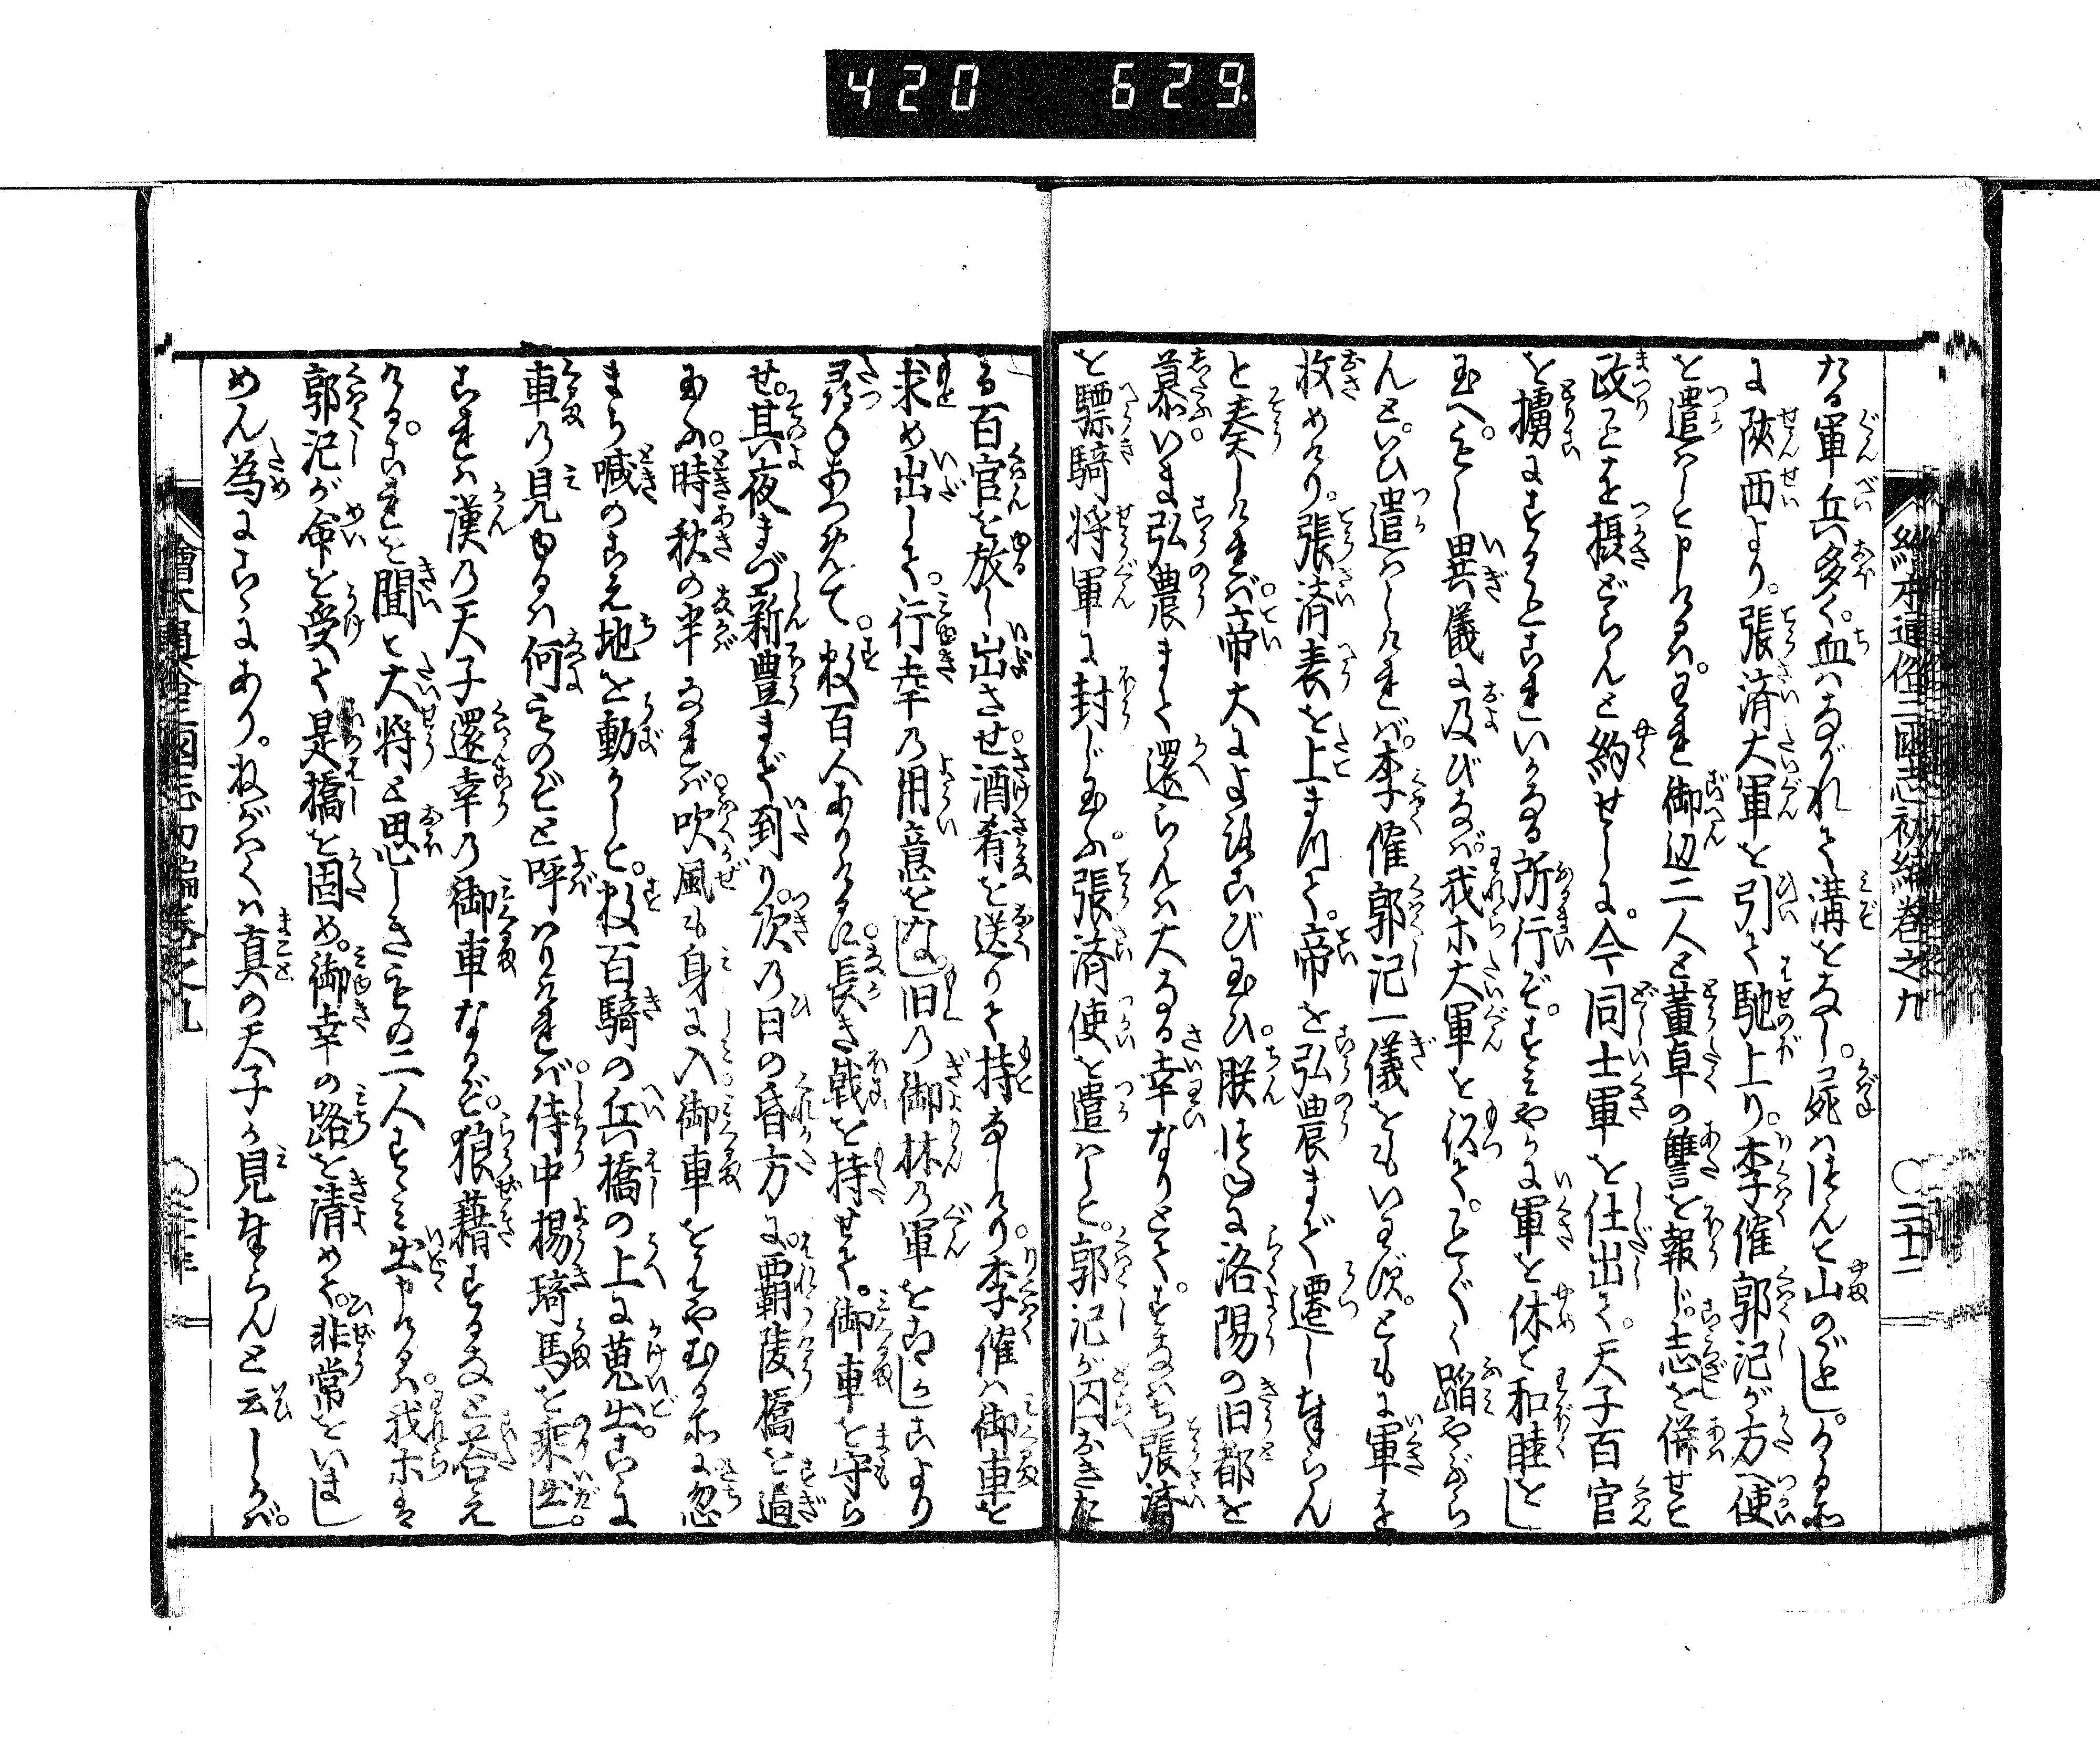 420 629
絵本通俗三国志初編巻之九 〇二十二
たる軍兵多く。血はながれて溝をなし。死かばねはつんで山のごとし。かゝる所
に陝西より。張済大軍を引て馳上り。李傕郭汜が方へ使
を遣はして申けるは。われ御辺二人と董卓の讐を報じ。志を併せと
政ことを摂どらんと約せしに。今同士軍を仕出て。天子百官
を擄にすることこれいかなる所行ぞ。すみやかに軍を休て和睦をし
玉へ。もし異儀に及びなば。我等大軍を以て。ことごとく踏やぶら
んと。いひ遣はしければ。李傕郭汜一儀をもいはず。ともに軍を
収めけり。張済表を上まつて。帝を弘農まで遷し奉らん
と奏しければ。帝大によろこび玉ひ。朕つねに洛陽の旧都を
慕ふ。いま弘農まで還らんは大なる幸なりとて。すなはち張済
を驃騎将軍に封じ玉ふ。張済使を遣はして。郭汜が囚おきた
る百官を放し出させ。酒肴を送りて持なしけり。李傕は御車を
求め出して。行幸の用意をなし。旧の御林の軍をこゝかしこより
尋ねあつめて。数百人ありけるに。長き戟を持せて。御車を守ら
せ。其夜まづ新豊まで到り。次の日の昏方に。覇陵橋を過
玉ふ。時秋の半なれば。吹風も身に入御車をはやむる所に忽
まち喊のこえ地を動かして。数百騎の兵橋の上に蒐出。こゝに
車の見ゆるは何ものぞと呼はりければ。侍中楊琦馬を乗出し。
これは漢の天子還幸の御車なるぞ。狼藉するなと答え
ける。これを聞て大将と思しきもの二人すゝみ出申けるは。我等は
郭汜が命を受て是橋を固め。御幸の路を清めて。非常をいまし
めん為にこゝにあり。ねがはくは真の天子か見奉らんと云しかば。
繪本通俗三國志初編巻之九